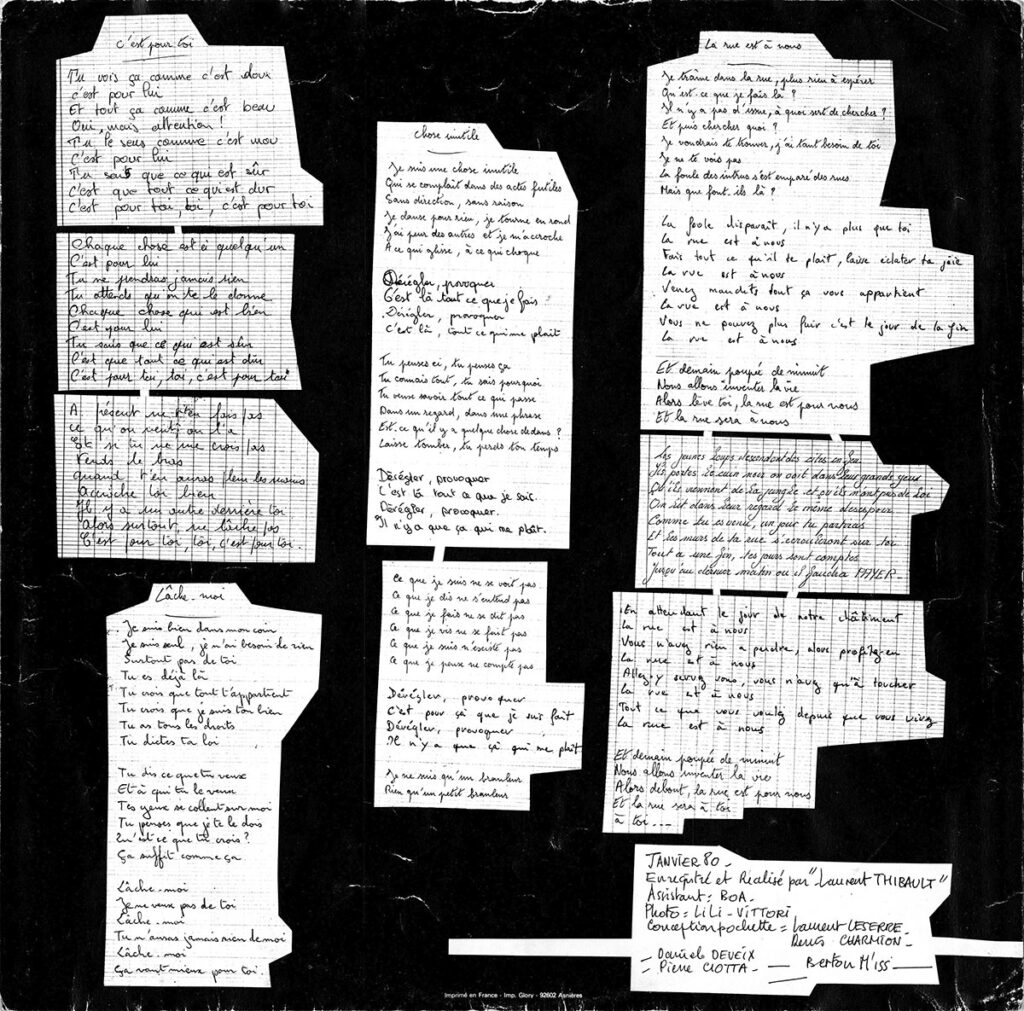 C'est pour toi
Tu vois ça comme c'est doux
c'est pour lui
Et tout ça comme c'est beau
Oui, mais attention !
Tu le sens comme c'est mou
C'est pour lui
Tu sais que ce qui est sûr
C'est que tout ce qui est dur
C'est pour toi, toi, c'est pour toi
Chaque chose est à quelqu'un
C'est pour lui
Tu ne prendras jamais rien
Tu attends qu'on te le donne
Chaque chose qui est bien
C'est pour lui
Tu sais que ce qui est sûr
C'est que tout ce qui est dur
C'est pour toi, toi, c'est pour toi
A présent ne t'en fais pas
ce qu'on veut on l'a
Et si tu ne me crois pas
Tends le bras
quand t'en auras plein les mains
Accroche toi bien
Il y a un autre derrière toi
Alors surtout, ne lâche pas
C'est pour toi, toi, c'est pour toi.
Lâche-moi
Je suis bien dans mon coin
Je suis seul, je n'ai besoin de rien
Surtout pas de toi
Tu es déjà là
Tu crois que tout t'appartient
Tu crois que je suis ton bien
Tu as tous les droits
Tu dictes ta loi
Tu dis ce que tu veux
Et à qui tu le veux
Tes yeux se collent sur moi
Tu penses que je te le dois
Qu'est ce que tu crois ?
Ça suffit comme ça
Lâche-moi
Je ne veux pas de toi
Lâche-moi
Tu n'auras jamais rien de moi
Lâche-moi
Ça vaut mieux pour toi.
Chose inutile
Je suis une chose inutile
Qui se complait dans des actes futiles
Sans direction, sans raison
Je danse pour rien, je tourne en rond
J'ai peur des autres et je m'accroche
A ce qui glisse, à ce qui choque
Dérégler, provoquer
C'est là tout ce que je fais
Dérégler, provoquer
C'est là, tout ce qui me plait
Tu penses ci, tu penses ça
Tu connais tout, tu sais pourquoi
Tu veux savoir tout ce qui passe
Dans un regard, dans une phrase
Est-ce qu'il y a quelque chose dedans ?
Laisse tomber, tu perds ton temps
Dérégler, provoquer
C'est là tout ce que je sais.
Dérégler, provoquer.
Il n'y a que ça qui me plaît.
Ce que je suis ne se voit pas
Ce que je dis ne s'entend pas
Ce que je fais ne se dit pas
Ce que je vis ne se fait pas
Ce que je suis n'existe pas
Ce que je pense ne compte pas
Dérégler, provoquer
C'est pour ça que je suis fait
Dérégler, provoquer
Il n'y a que ça qui me plaît
Je ne suis qu'un branleur
Rien qu'un petit branleur
La rue est à nous
Je traîne dans la rue, plus rien à espérer
Qu'est-ce que je fais là ?
Il n'y a pas d'issue, à quoi sert de chercher ?
Et puis chercher quoi ?
Je voudrais te trouver, j'ai tant besoin de toi
Je ne te vois pas
La foule des intrus s'est emparé des rues
Mais que font-ils là ?
La foule disparaît, il n'y a plus que toi
La rue est à nous
Fais tout ce qu'il te plait, laisse éclater ta joie
La rue est à nous
Venez maudits tout ça vous appartient
La rue est à nous
Vous ne pouvez plus fuir c'est le jour de la fin
La rue est à nous
Et demain poupée de minuit
Nous allons inventer la vie
Alors lève toi, la rue est pour nous
Et la rue sera à nous
Les jeunes loups descendent des cités en feu
Qu'ils viennent de la jungle et qu'ils n'ont pas de loi
On lit dans leur regard le même désespoir
Comme tu es venu, un jour tu partiras
Et les murs de la rue s'écrouleront sur toi
Tout a une fin, les jours sont comptés
Jusqu'au dernier matin où il faudra PAYER_
En attendant le jour de notre châtiment
La rue est à nous
Vous n'avez rien à perdre, alors profitez-en
La rue est à nous
Allez-y servez vous, vous n'avez qu'à toucher
La rue est à nous
Tout ce que vous voulez depuis que vous vivez
La rue est à nous
Et demain poupée de minuit
Nous allons inventer la vie
Alors debout, la rue est pour nous
Et la rue sera à toi
à toi ....
JANVIER 80 _
Enregistré et Réalisé par "Laurent THIBAULT"
Assistant : BOA -
Photo = LILI - VITTORI
Conception pochette = Laurent LESERRE -
Denis CHARMION -
- Daniels DEVEIX
- Pierre CIOTTA - Berton M'ISS
Imprimé en France - Imp. Glory - 92602 Asnières